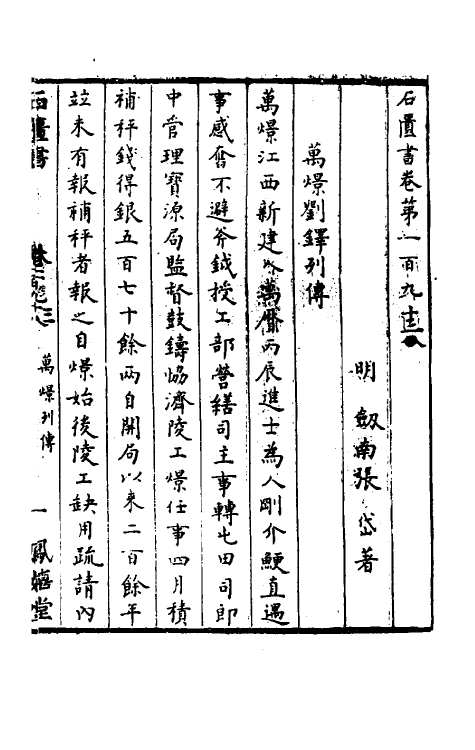 石匱書卷第一百九十
明 劔南張岱著
萬燝劉鐸列傳
萬燝江西新建人萬曆丙辰進士為人剛介鯁直遇
事感奮不避斧鉞授工部營繕司主事轉屯田司郎
中管理寶源局監督鼓鑄恊濟陵工燝任事四月積
補秤錢得銀五百七十餘兩自開局以來二百餘年
竝未有報補秤者報之自燝始後陵工缺用疏請內
石匱書 卷 萬燝列傳 一 鳳嬉堂